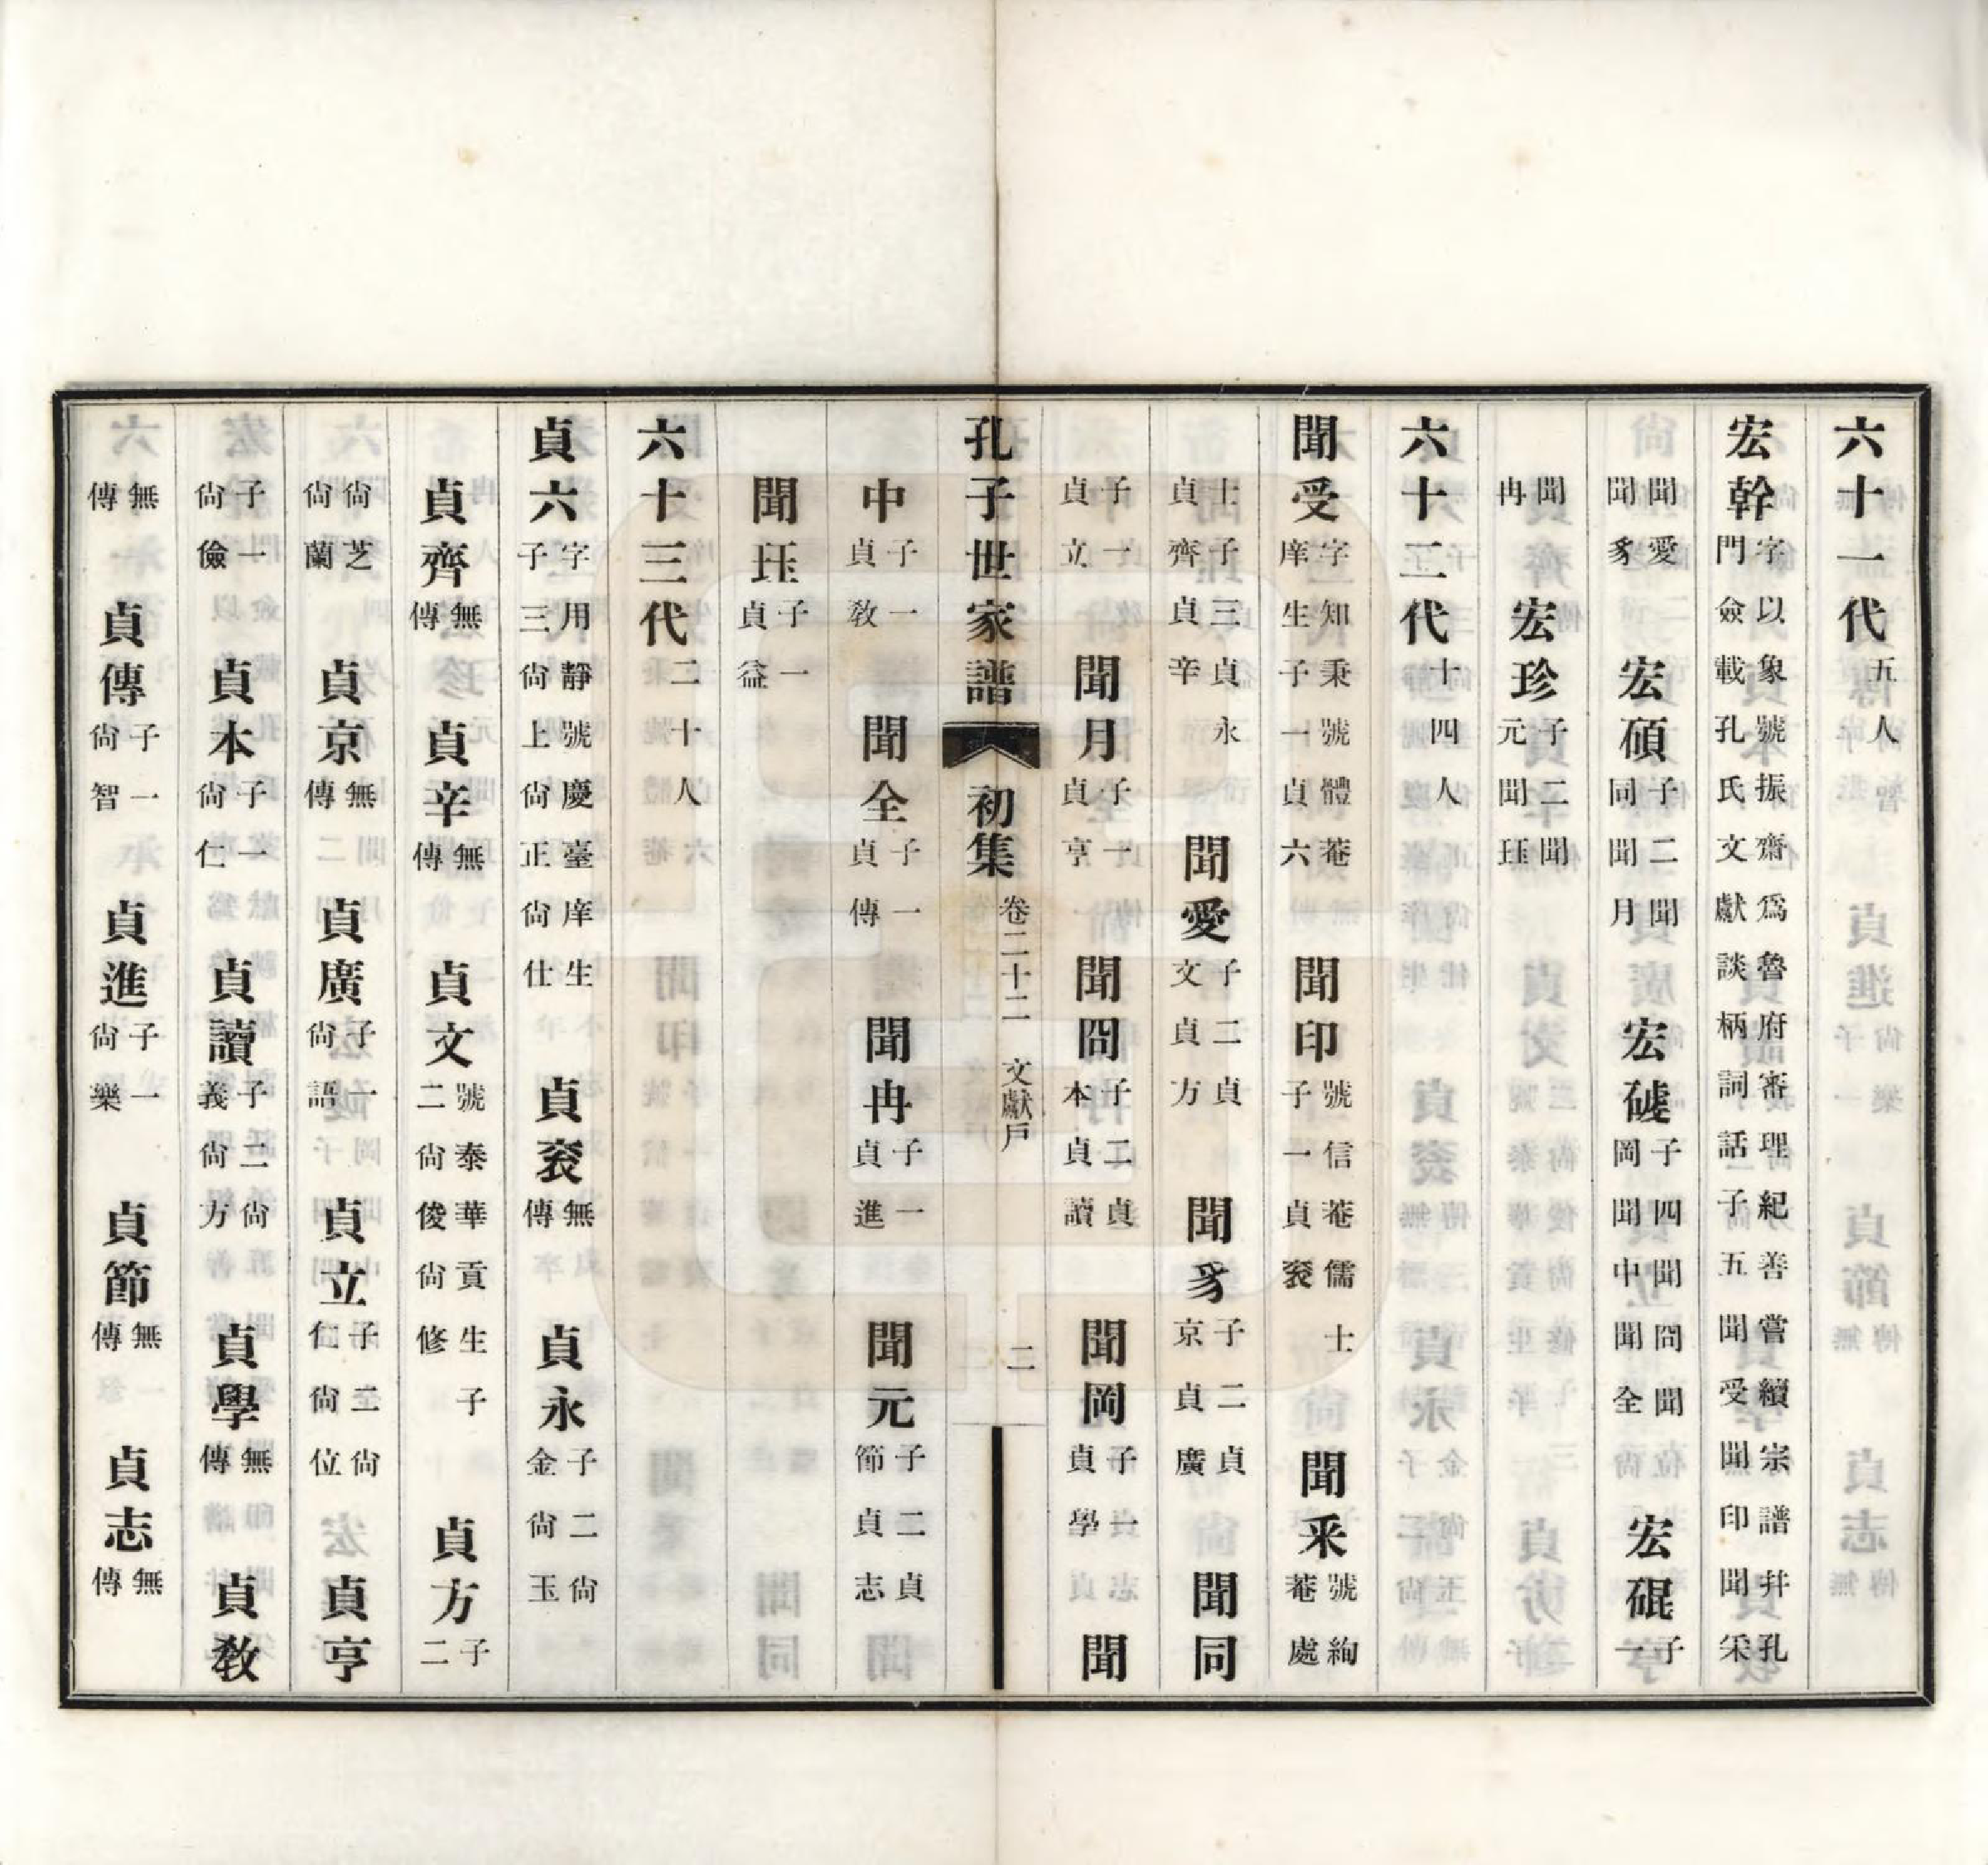 六十一代五人
宏幹字以象號振齋爲魯府審理紀善嘗續宗譜幷孔門僉載孔氏文獻談柄詞話子五聞受聞印聞采
聞愛聞豸 宏碩子二聞同聞月 宏𥔲子四聞冏聞岡聞中聞全 宏硍子一
聞冉 宏珍子二聞元聞珏
六十二代十四人
聞受字知秉號體菴庠生子一貞六 聞印號信菴儒士子一貞袞 聞采號絢菴處
士子三貞永貞齊貞辛 聞愛子二貞文貞方 聞豸子二貞京貞廣 聞同
子一貞立 聞月子一貞亨 聞冏子二貞本貞讀 聞岡子一貞學 聞
孔子世家譜 初集 卷二十二 文獻戶 二
中子一貞敎 聞全子一貞傳 聞冉子一貞進 聞元子二貞節貞志
聞珏子一貞益
六十三代二十人
貞六字用靜號慶臺庠生子三尙上尙正尙仕 貞袞無傳 貞永子二尙金尙玉
貞齊無傳 貞辛無傳 貞文號泰華貢生子二尙俊尙修 貞方子二
尙芝尙蘭 貞京無傳 貞廣子一尙語 貞立子二尙仁尙位 貞亨
子一尙儉 貞本子一尙仁 貞讀子二尙義尙方 貞學無傳 貞敎
無傳 貞傳子一尙智 貞進子一尙樂 貞節無傳 貞志無傳